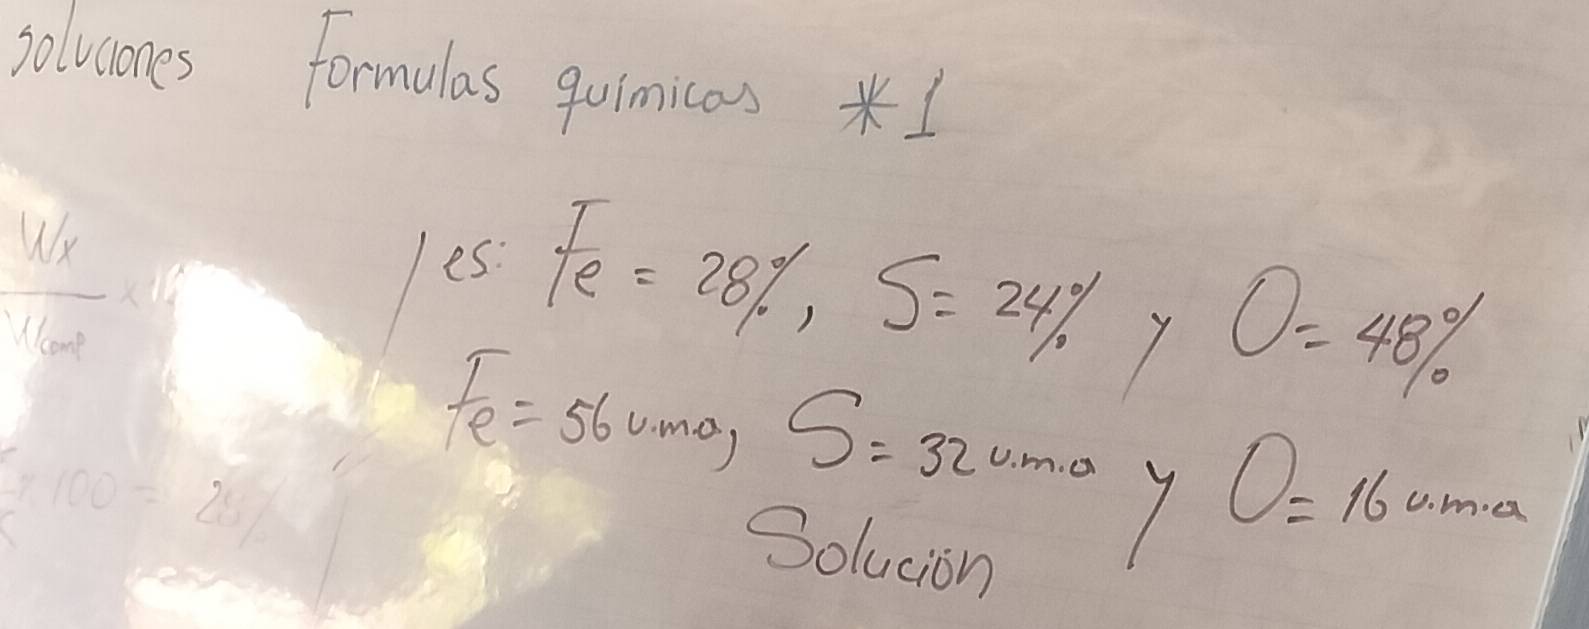 soluciones Formulas químicas *1
Wx
Wcomp
es: Fe = 28%, S= 24% y O= 48%
Fe= 56 u.m.a, S= 32 u.m.a y O= 16 u.m.a
x 100 = 28%
Solución